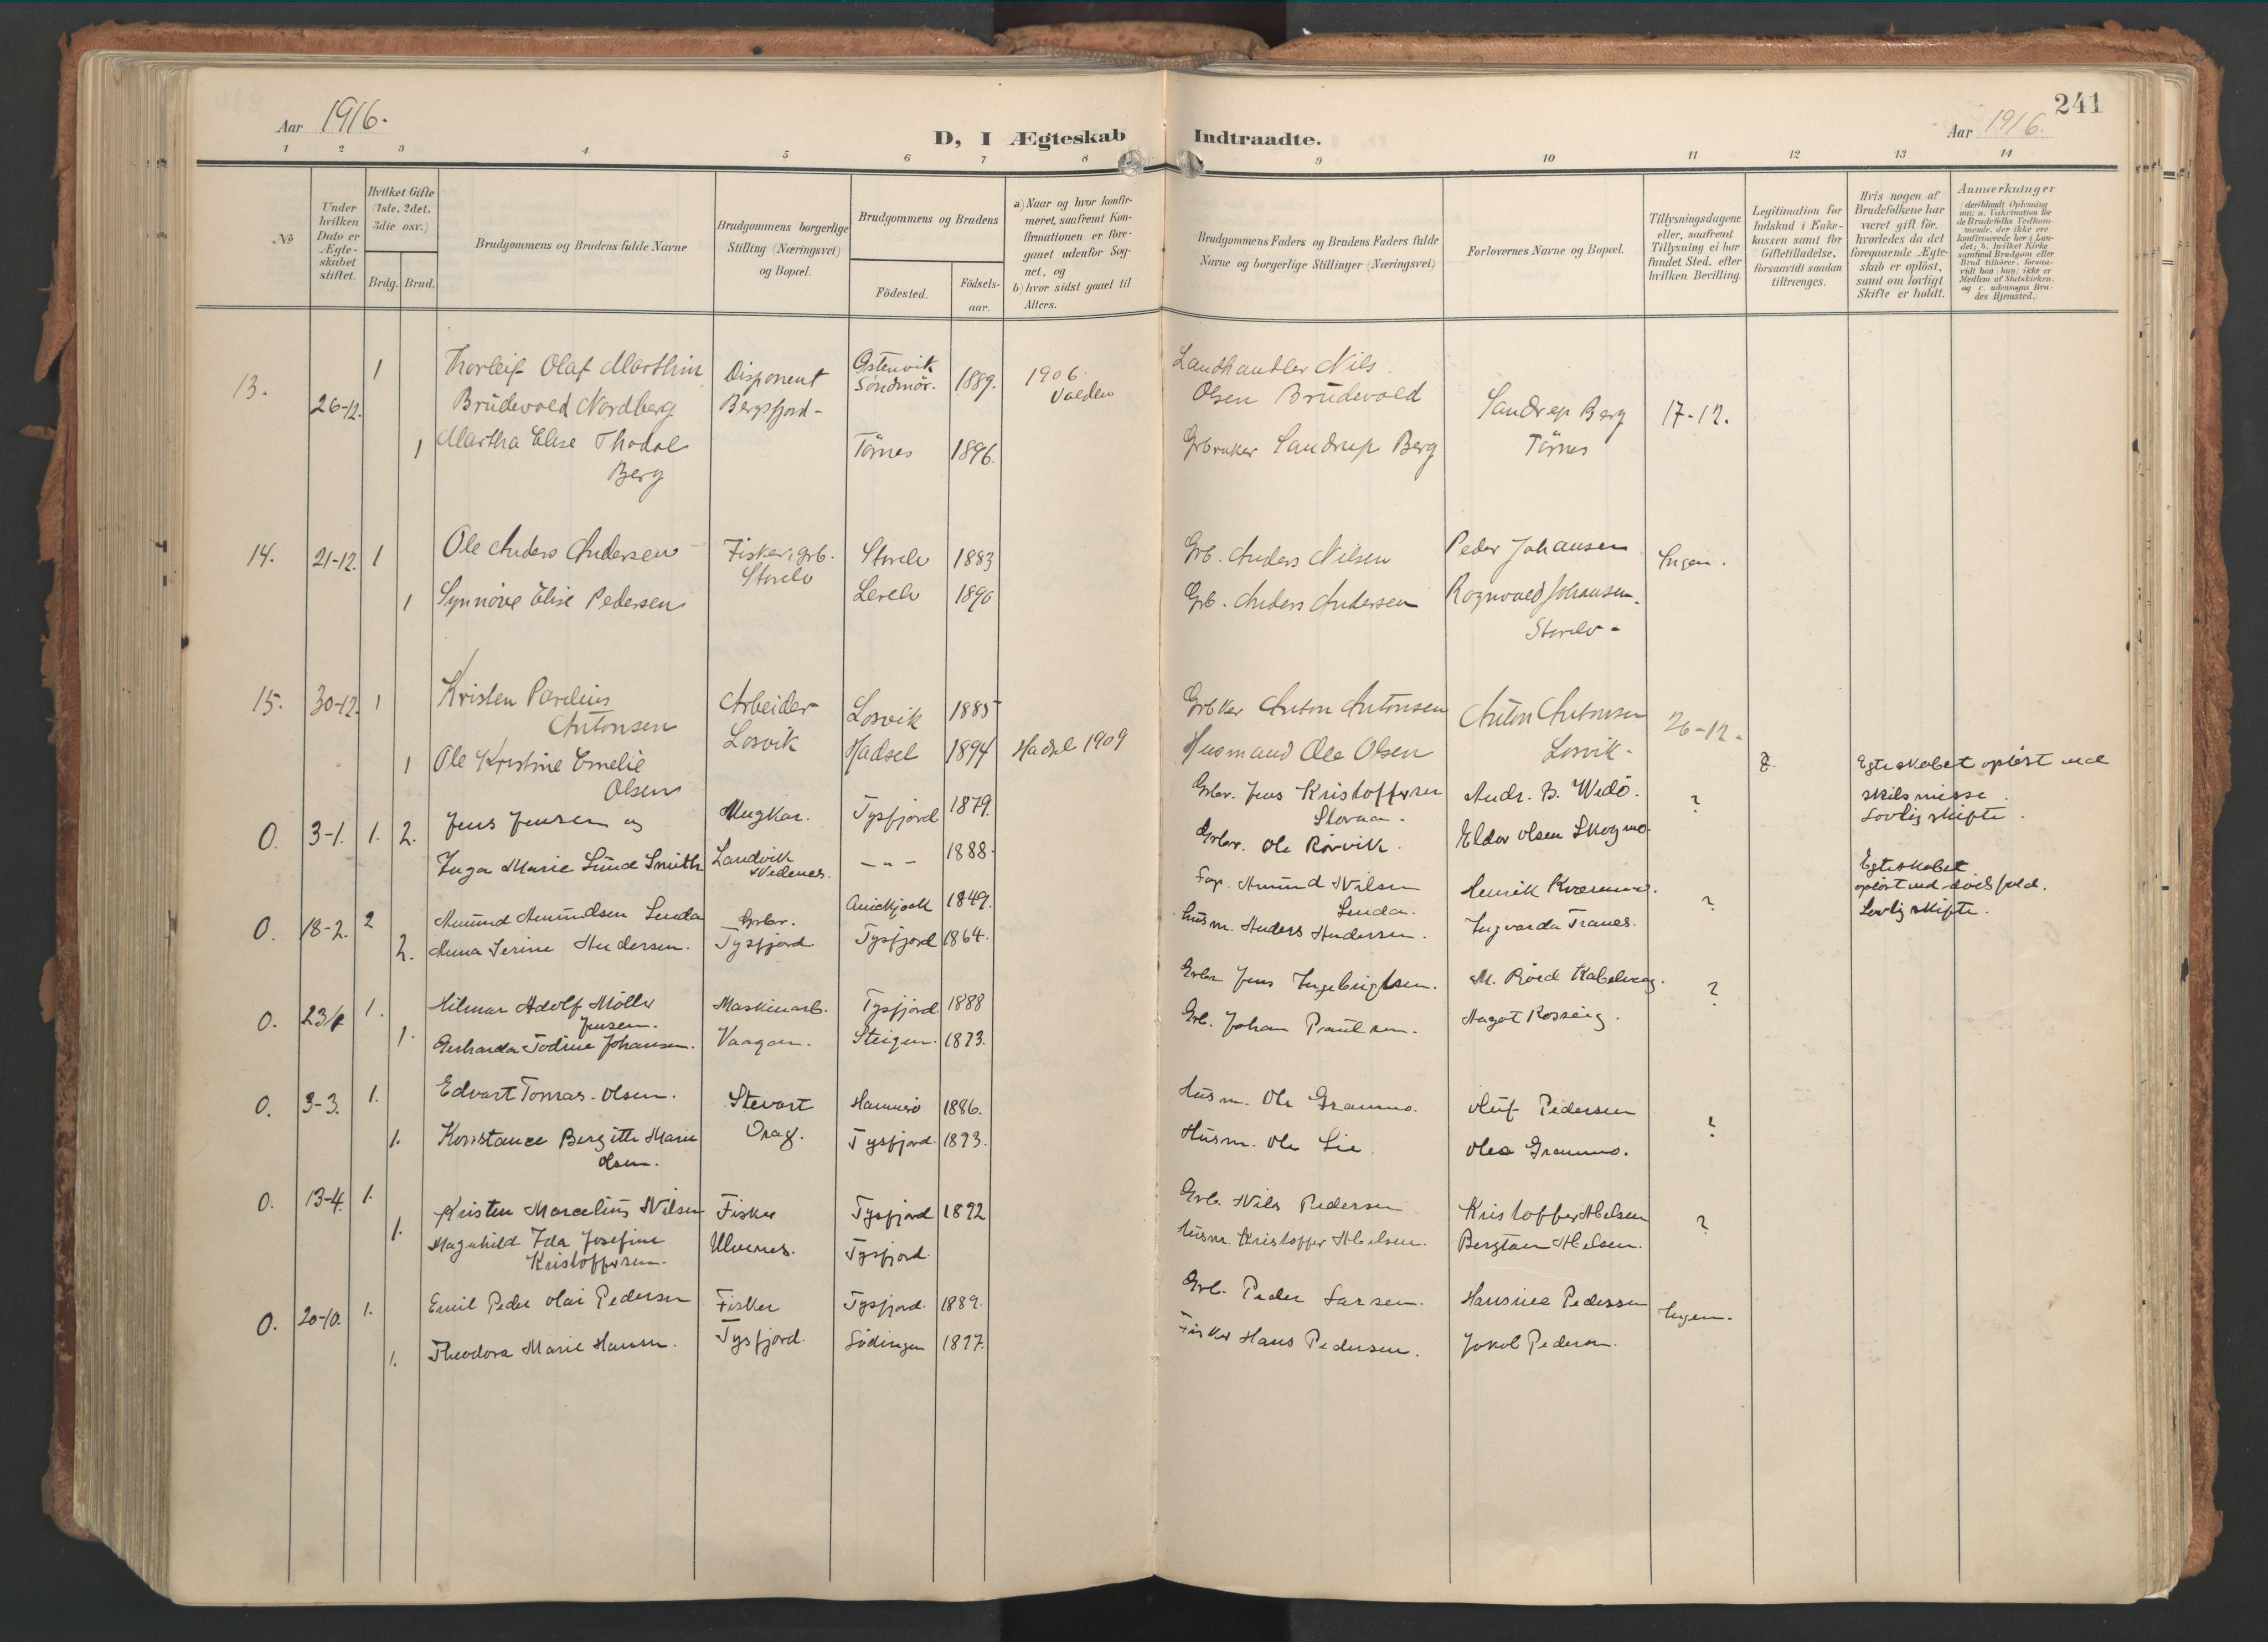 241
Aar 1916.
D, I Ægteskab Indtraadte.
Aar 1916.
1 2 3 4 5 6 7 8 9 10 11 12 13 14
No
Under hvilken Dato er Ægteskabet stiftet.
Hvilket Gifte (1ste, 2det, 3die osv.)
Brdg. Brud.
Brudgommens og Brudens fulde Navne
Brudgommens borgerlige Stilling (Næringsvei) og Bopæl.
Brudgommens og Brudens
Födested. Födselsaar.
a) Naar og hvor konfirmeret, saafremt Konfirmationen er foregaaet udenfor Sognet, og
b) hvor sidst gaaet til Alters.
Brudgommens Faders og Brudens Faders fulde Navne og borgerlige Stillinger (Næringsvei)
Forlovernes Navne og Bopæl.
Tillysningsdagene eller, saafremt Tillysning ei har fundet Sted, efter hvilken Bevilling.
Legitimation for Indskud i Enkekassen samt for Giftetilladelse, forsaavidt saadan tiltrænges.
Hvis nogen af Brudefolkene har været gift för, hvorledes da det foregaaende Ægteskab er oplöst, samt om lovligt Skifte er holdt.
Anmærkninger (deriblandt Oplysning om: a. Vakcination for de Brudefolks Vedkommende, der ikke ere konfirmerede her i Landet; b. hvilket Kirkesamfund Brudgom eller Brud tilhörer, forsaavidt han (hun) ikke er Medlem af Statskirken, og c. udensogns Brudes Hjemsted.)
13. 26-12. 1 Thorleif Olaf Marthin Disponent Søndmör. 1889. 1906. Landhandler Nils
Brüdevold Nordberg Bergsfjord- Olsen Brüdevold Sandrup Berg 17-12.
1 Martha Elise Berg Törnes 1896. Sandrup Berg Törnes
14. 21-12. 1 Ole Anders Andersen Fisker, grb. Storelv Storelv 1883 Grb. Anders Nilsen Peder Johansen Ingen.
1 Synnöve Elise Pedersen 1890 Grb. Anders Andersen Ragnvald Johansen. Storelv-
15. 30-12. 1 Kristen Antonsen Arbeider Losvik Losvik 1885 Anton Antonsen Anton Antonsen 26-12.
1 Ole Kristine Emelie Olsen Hadsel 1894 Hadsel 1909 Husmand Ole Olsen Losvik-
0. 3-1. 1. 2. Jens Jensen og Ungkar. Tysfjord 1879. Grbr. Jens Kristoffersen Andr. B. Widö. ? Egteskabet opløst ved skilsmisse. Lovlig skifte.
Inga Marie Lund Smith Landvik -"- 1888. Grbr. Ole Rörvik. Eldor Olsen Skogmo.
0. 18-2. 2 Amund Amundsen Grbr. 1849. Amund Nilsen Henrik ? Egteskabet opløst ved dødsfald. Lovlig skifte.
2. Anna Serine Andersen. Tysfjord Tysfjord 1864. Husm. Anders Andersen. Ingvarda Tranes.
0. 1. Hilmar Adolf Möller Jensen. Maskinarb. Tysfjord 1888 Grbr. Jens Ingebrigtsen. M. Röed Kabelvaag. ?
1. Gerharda Todine Johansen. Vaagan. Steigen. 1893. Grb. Johan Paulsen.
0. 3-3. 1. Edvart Tomas Olsen. Stevart Hammerö 1886. Husm. Ole Grammo. Oluf Pedersen ?
1. Konstance Bergitte Marie Olsen. Drag. Tysfjord. 1893. Husm. Ole Lie. Olea Grammo.
0. 13-4. 1. Kristen Marcelius Nilsen Fisker Tysfjord 1892 Grb. Nils Pedersen Kristoffer Abelsen ?
1. Magnhild Ida Josefine Kristoffersen. Ulvenes. Tysfjord. Husm. Kristoffer Abelsen. Abelsen.
0. 20-10. 1. Emil Peder Olai Pedersen Fisker Tysfjord. 1889. Grb. Peder Larsen. Hansine Pedersen Ingen.
1. Theodora Marie Hansen. Tysfjord. Lödingen 1897. Fisker Hans Pedersen. Jakob Pedersen.